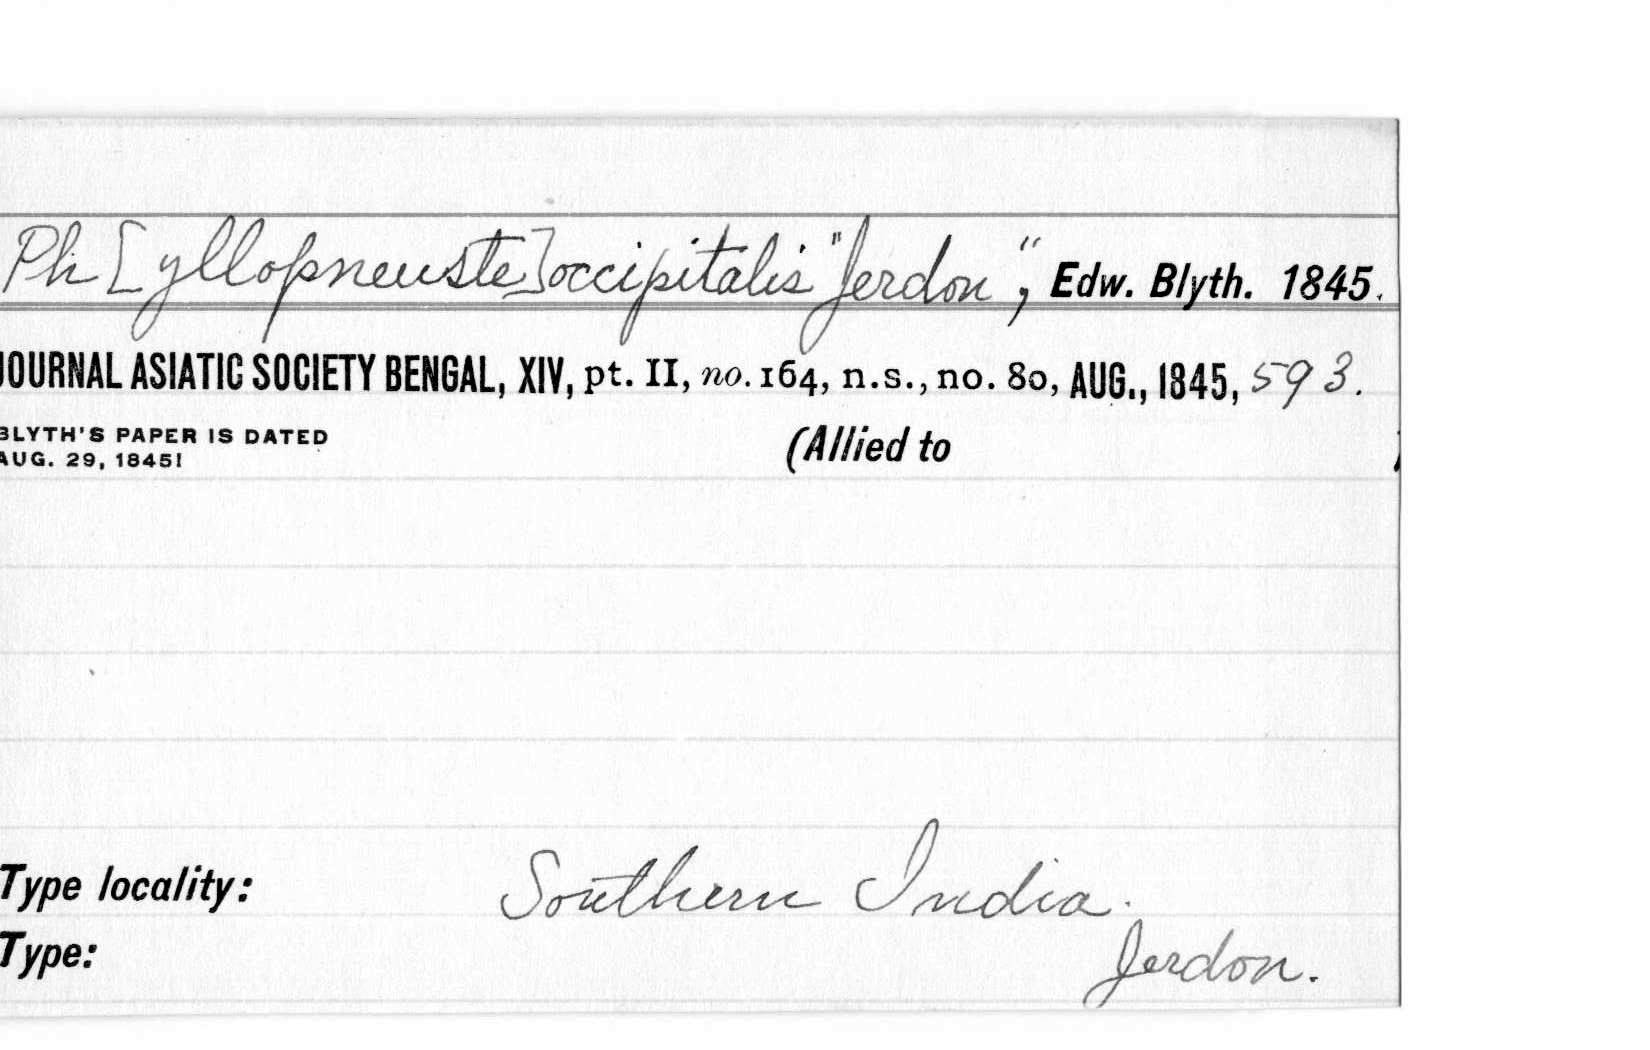 Ph[yllopneuste] occipitalis "Jerdon", Edw. Blyth. 1845.
JOURNAL ASIATIC SOCIETY BENGAL, XIV, pt. II, no. 164, n.s., no. 80, AUG., 1845, 593.
BLYTH'S PAPER IS DATED
AUG. 29, 1845!
(Allied to )
Type locality: Southern India.
Type: Jerdon.